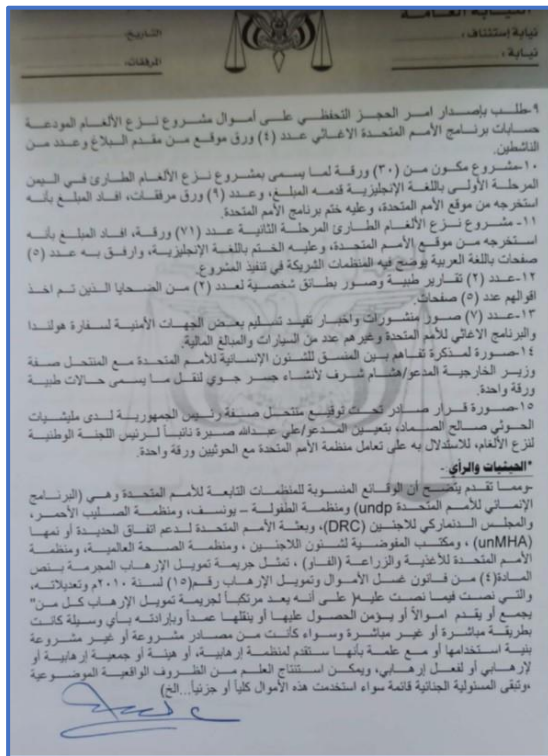 النيابة العامة
نيابة إستئناف :
نيابة :
التاريخ:
المرفقات:
٩-طلب بإصدار امر الحجز التحفظي على أموال مشروع نزع الألغام المودعة
حسابات برنامج الأمم المتحدة الاغاثي عدد (٤) ورق موقع من مقدم البلاغ وعدد من
الناشطين.
١٠-مشروع مكون من (٣٠) ورقة لما يسمى بمشروع نزع الألغام الطارئ في اليمن
المرحلة الأولى باللغة الإنجليزية قدمه المبلغ، وعدد (٩) ورق مرفقات، افاد المبلغ بأنه
استخرجه من موقع الأمم المتحدة، وعليه ختم برنامج الأمم المتحدة.
١١- مشروع نزع الألغام الطارئ المرحلة الثانية عدد (٧١) ورقة، افاد المبلغ بأنه
استخرجه من موقع الأمم المتحدة، وعليه الختم باللغة الإنجليزية، وارفق به عدد (٥)
صفحات باللغة العربية يوضح فيه المنظمات الشريكة في تنفيذ المشروع.
١٢-عدد (٢) تقارير طبية وصور بطائق شخصية لعدد (٢) من الضحايا الذين تم اخذ
اقوالهم عدد (٥) صفحات.
١٣-عدد (٧) صور منشورات واخبار تفيد تسليم بعض الجهات الأمنية لسفارة هولندا
والبرنامج الاغاثي للأمم المتحدة وغيرهم عدد من السيارات والمبالغ المالية.
١٤-صورة لمذكرة تفاهم بين المنسق للشئون الإنسانية للأمم المتحدة مع المنتحل صفة
وزير الخارجية المدعو/هشام شرف لأنشاء جسر جوي لنقل ما يسمى حالات طبية
ورقة واحدة.
١٥-صورة قرار صادر تحت توقيع منتحل صفة رئيس الجمهورية لدى مليشيات
الحوثي صالح الصماد، بتعيين المدعو/علي عبدالله صبرة نائباً لرئيس اللجنة الوطنية
لنزع الألغام، للاستدلال به على تعامل منظمة الأمم المتحدة مع الحوثيين ورقة واحدة.
*الحيثيات والرأي .
-ومما تقدم يتضح أن الوقائع المنسوبة للمنظمات التابعة للأمم المتحدة وهي (البرنامج
الإنمائي للأمم المتحدة undp) ومنظمة الطفولة – يونسف، ومنظمة الصليب الأحمر،
والمجلس الدنماركي للاجئين (DRC)، وبعثة الأمم المتحدة لدعم اتفاق الحديدة أو نمها
(unMHA) ، ومكتب المفوضية لشئون اللاجئين ، ومنظمة الصحة العالمية، ومنظمة
الأمم المتحدة للأغذية والزراعة (الفاو) ، تمثل جريمة تمويل الإرهاب المجرمة بنص
المادة(٤) من قانون غسل الأموال وتمويل الإرهاب رقم(١٥) لسنة ٢٠١٠م وتعديلاته،
والتي نصت فيما نصت عليه( على أنه يعد مرتكباً لجريمة تمويل الإرهاب كل من"
يجمع أو يقدم اموالاً أو يؤمن الحصول عليها أو ينقلها عمداً وبإرادته بأي وسيلة كانت
بطريقة مباشرة أو غير مباشرة وسواء كانت من مصادر مشروعة أو غير مشروعة
بنية استخدامها أو مع علمه بأنها ستقدم لمنظمة إرهابية، أو هيئة أو جمعية إرهابية أو
لإرهابي أو لفعل إرهابي، ويمكن استنتاج العلم من الظروف الواقعية الموضوعية
،وتبقى المسئولية الجنائية قائمة سواء استخدمت هذه الأموال كلياً أو جزئياً...الخ)